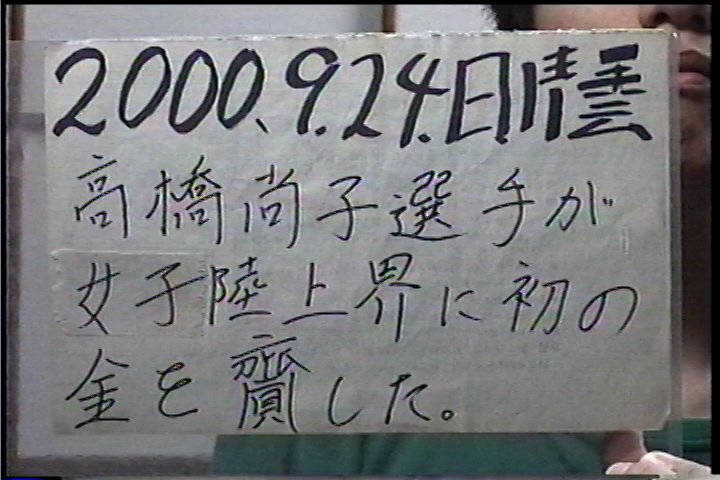 2000.9.24.日晴曇
高橋尚子選手が
女子陸上界に初の
金を齎した。